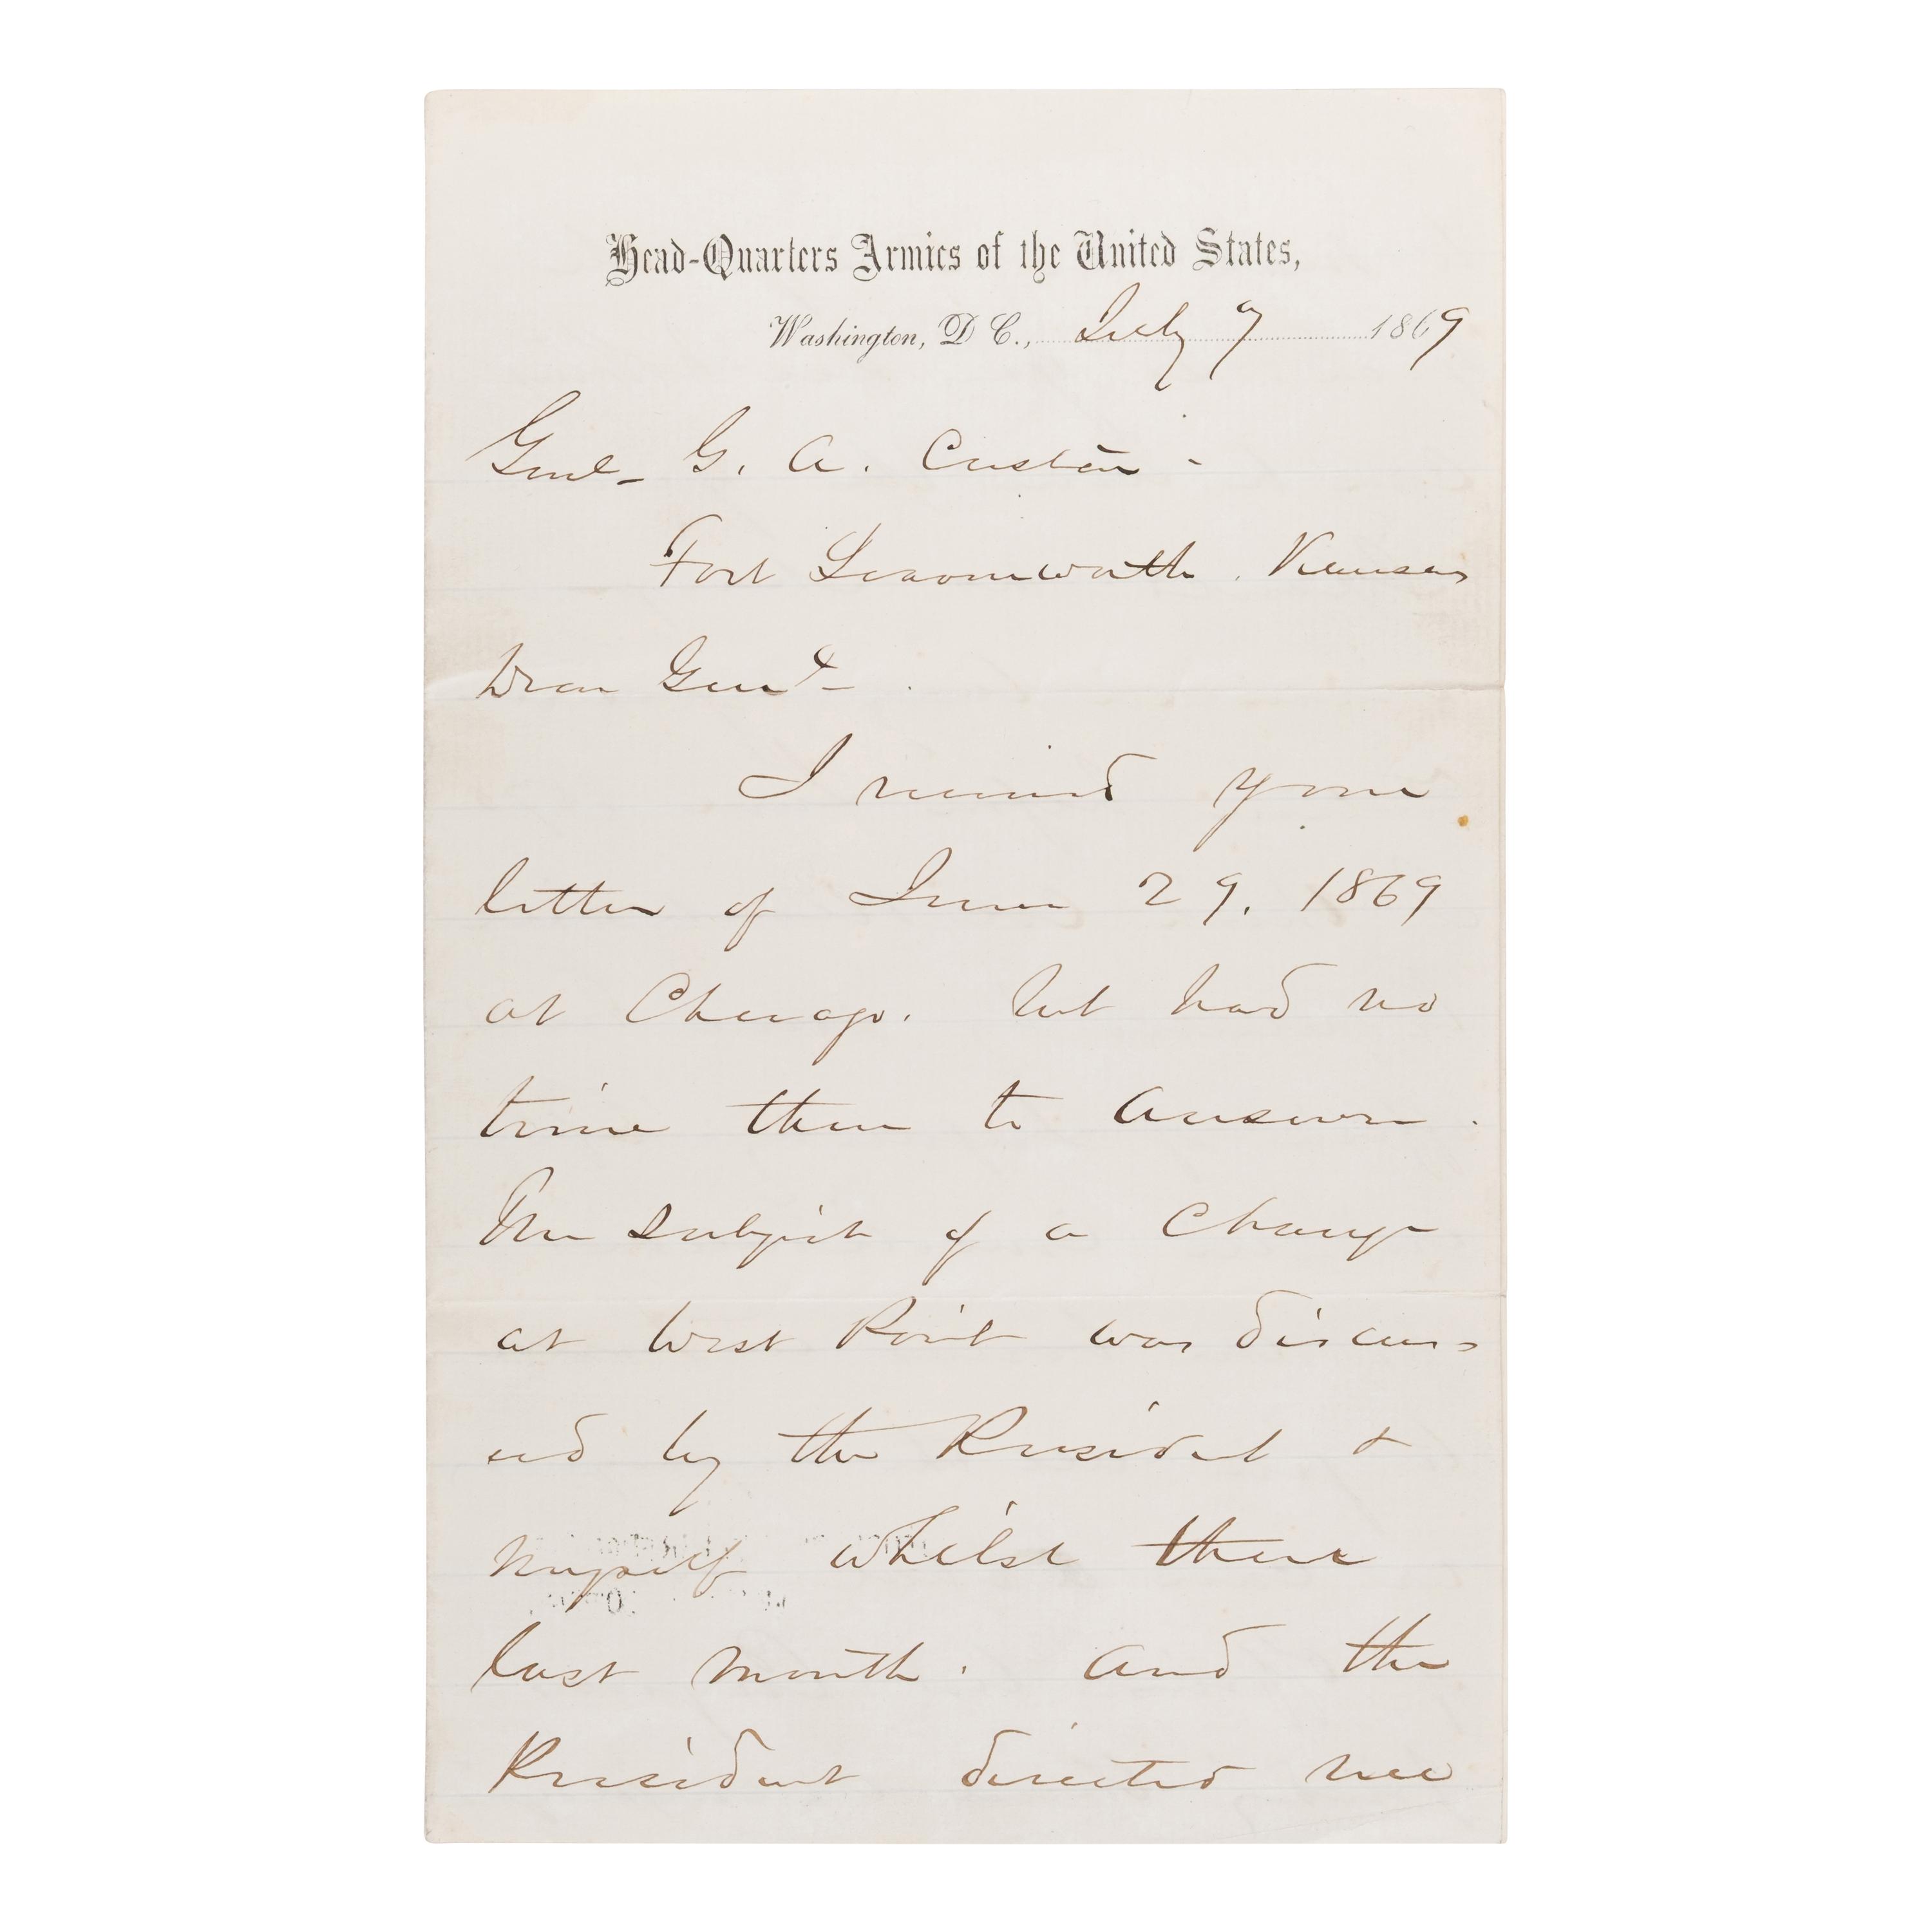 Head-Quarters Armies of the United States,
Washington, D C., July 7 1869
Genl. G. A. Custer -
Fort Leavenworth, Kansas
Dear Genl -
I received your
letter of June 29, 1869
at Chicago, but had no
time then to answer.
The subject of a change
at West Point was discus-
sed by the President &
myself whilst there
last month, and the
President directed me